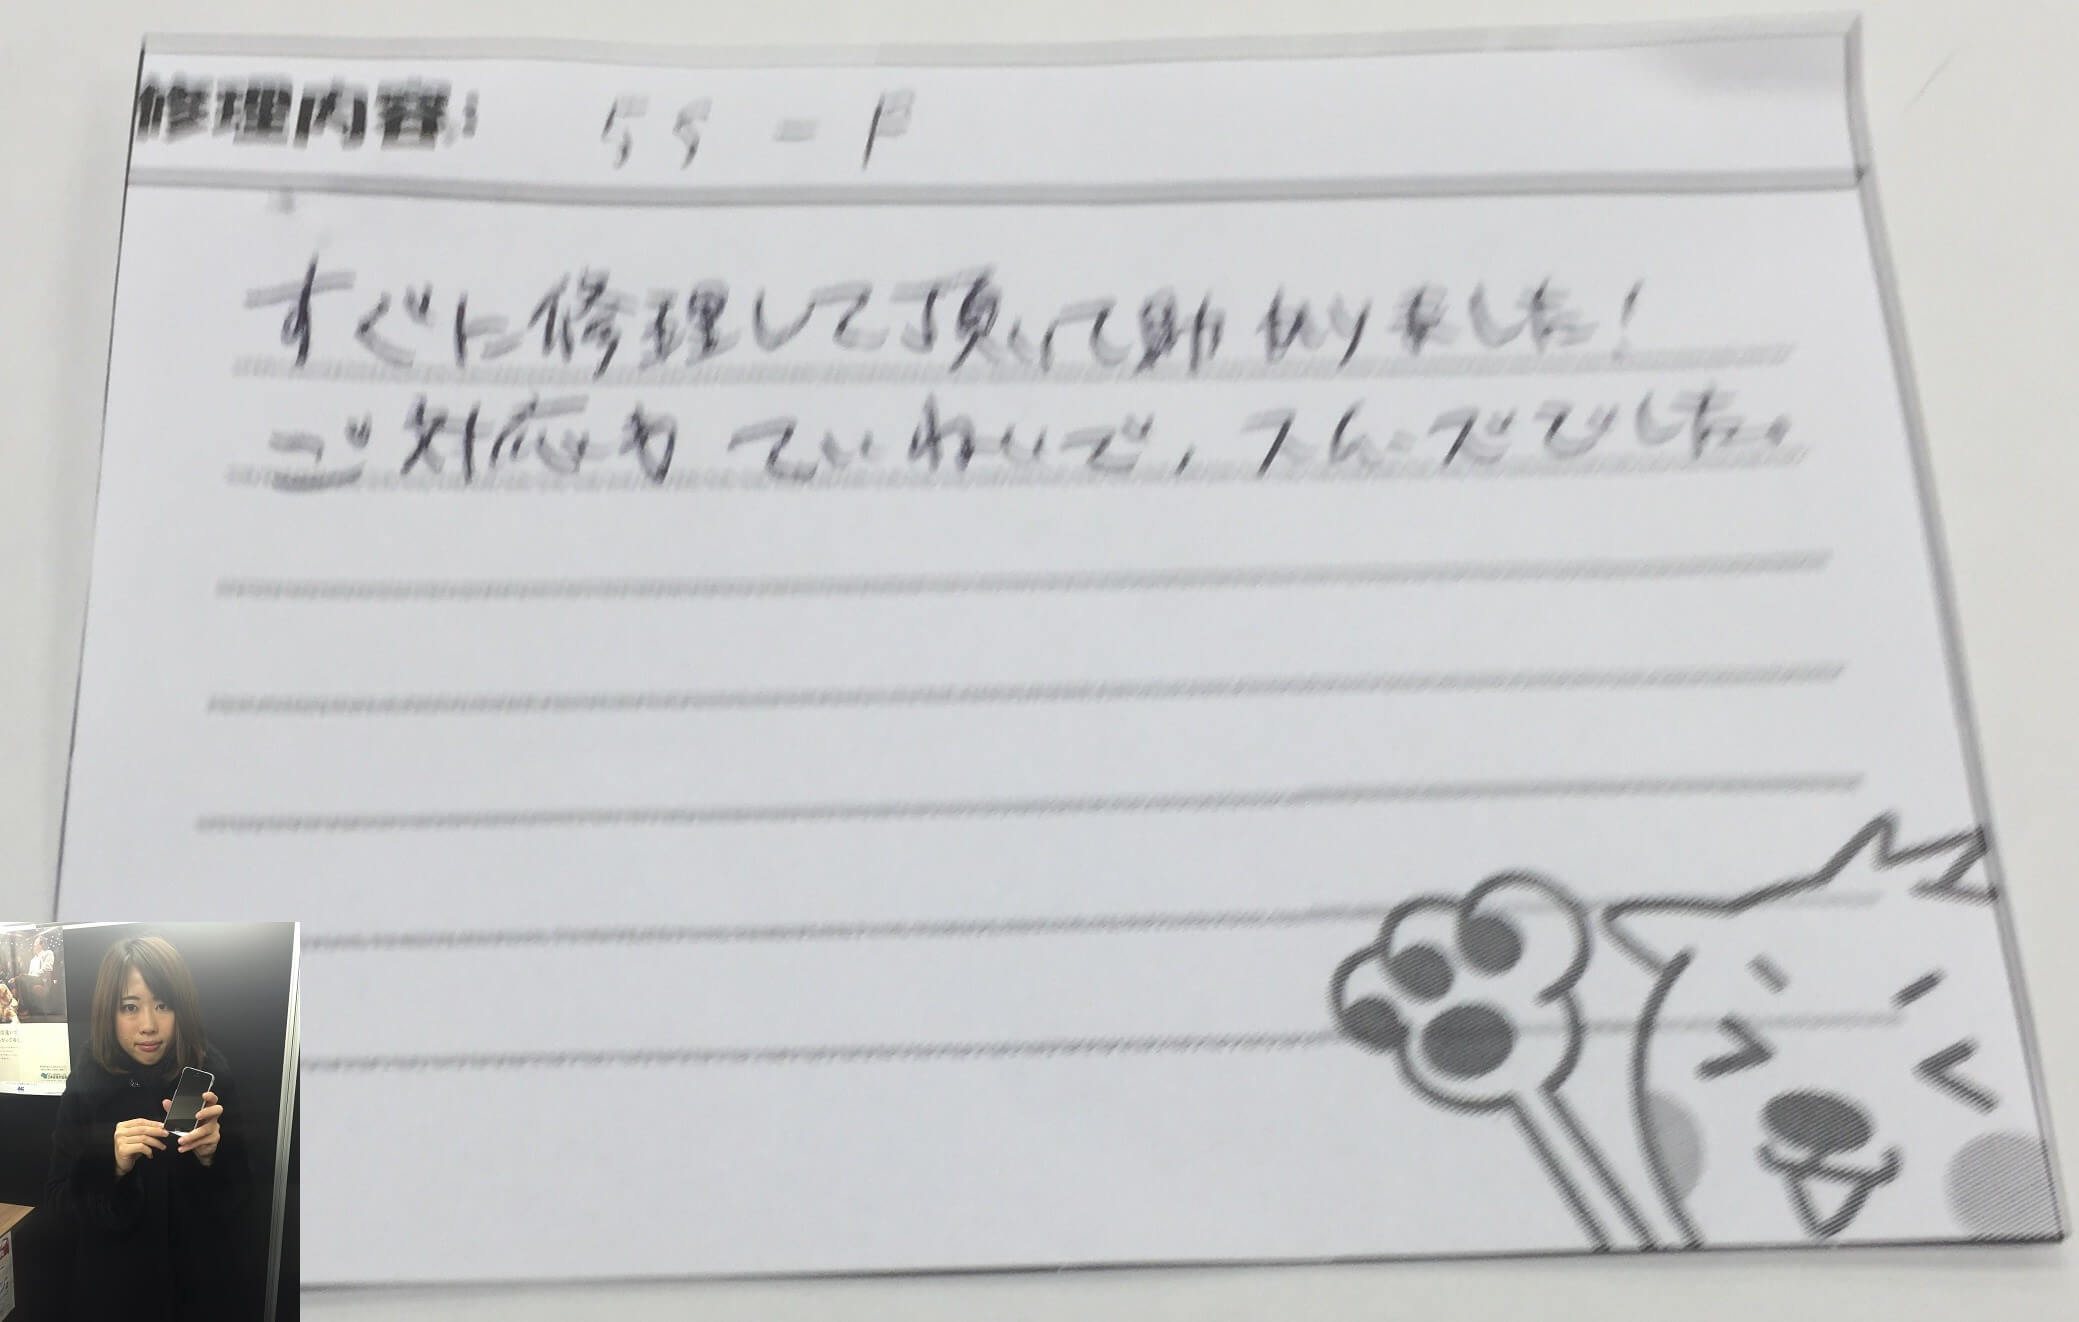 修理内容: 5S-F
すぐに修理して頂いて助かりました!
ご対応もていねいで、スムーズでした。